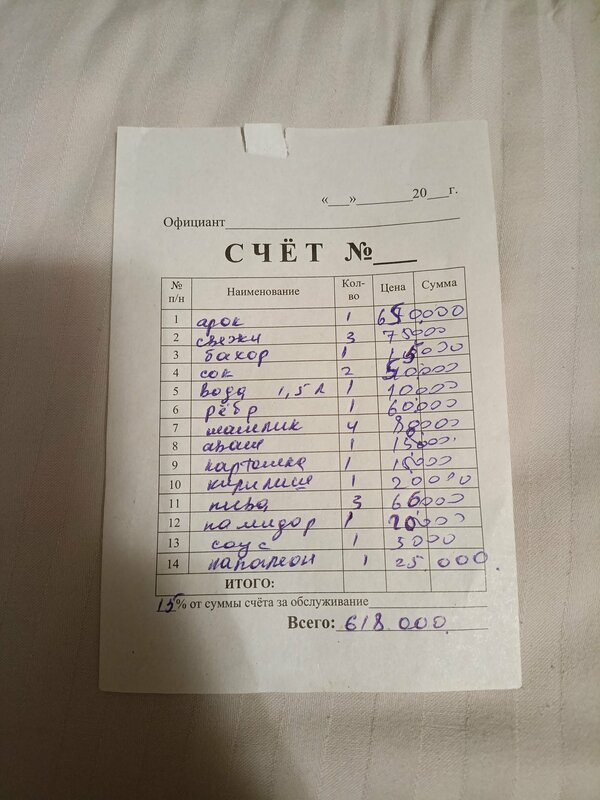 «___»________20___г.
Официант
СЧЁТ №___
№ п/н Наименование Кол-во Цена Сумма
1 арок 1
2 свежи 3 75000
3 бахор 1
4 сок 2
5 вода 1,5 л 1 10000
6 ребр 1 60000
7 шашлик 4
8 1 15000
9 картошка 1 15000
10 1 20000
11 пива 3 66000
12 памидор 1 20000
13 соус 1 5000
14 напалеон 1 25 000.
ИТОГО:
15% от суммы счёта за обслуживание
Всего: 618.000